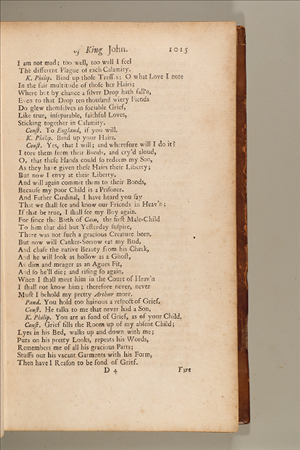 of King John. 1015
I am not mad; too well, too well I feel
The different Plague of each Calamity.
K. Philip. Bind up those Tresses; O what Love I note
In the fair multitude of those her Hairs;
Where but by chance a silver Drop hath fall'n,
Even to that Drop ten thousand wiery Fiends
Do glew themselves in sociable Grief,
Like true, inseparable, faithful Loves,
Sticking together in Calamity.
Const. To England, if you will.
K. Philip. Bind up your Hairs.
Const. Yes, that I will; and wherefore will I do it?
I tore them from their Bonds, and cry'd aloud,
O, that these Hands could so redeem my Son,
As they have given these Hairs their Liberty;
But now I envy at their Liberty,
And will again commit them to their Bonds,
Because my poor Child is a Prisoner.
And Father Cardinal, I have heard you say
That we shall see and know our Friends in Heav'n;
If that be true, I shall see my Boy again.
For since the Birth of Cain, the first Male-Child
To him that did but Yesterday suspire,
There was not such a gracious Creature born.
But now will Canker-Sorrow eat my Bud,
And chase the native Beauty from his Cheek,
And he will look as hollow as a Ghost,
As dim and meager as an Agues Fit,
And so he'll die; and rising so again,
When I shall meet him in the Court of Heav'n
I shall not know him; therefore never, never
Must I behold my pretty Arthur more.
Pand. You hold too hainous a respect of Grief.
Const. He talks to me that never had a Son.
K. Philip. You are as fond of Grief, as of your Child.
Const. Grief fills the Room up of my absent Child;
Lyes in his Bed, walks up and down with me;
Puts on his pretty Looks, repeats his Words,
Remembers me of all his gracious Parts;
Stuffs out his vacant Garments with his Form,
Then have I Reason to be fond of Grief.
D 4 Fare